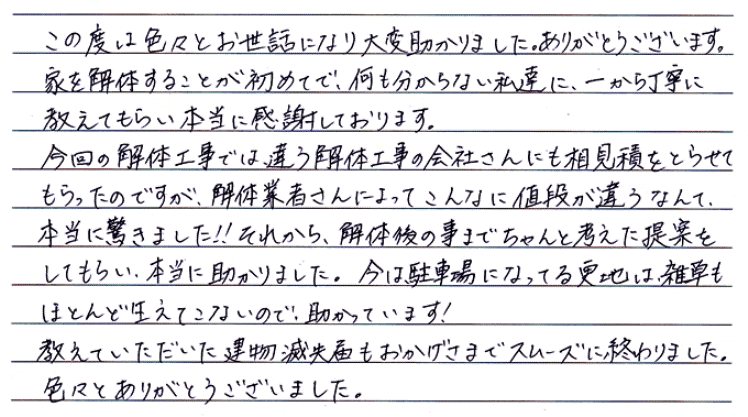 この度は色々とお世話になり大変助かりました。ありがとうございます。
家を解体することが初めてで、何も分からない私達に、一から丁寧に
教えてもらい本当に感謝しております。
今回の解体工事では、違う解体工事の会社さんにも相見積をとらせて
もらったのですが、解体業者さんによってこんなに値段が違うなんて、
本当に驚きました!!それから、解体後の事までちゃんと考えた提案を
してもらい、本当に助かりました。今は駐車場になってる更地は、雑草も
ほとんど生えてこないので、助かっています!
教えていただいた建物滅失届もおかげさまでスムーズに終わりました。
色々とありがとうございました。